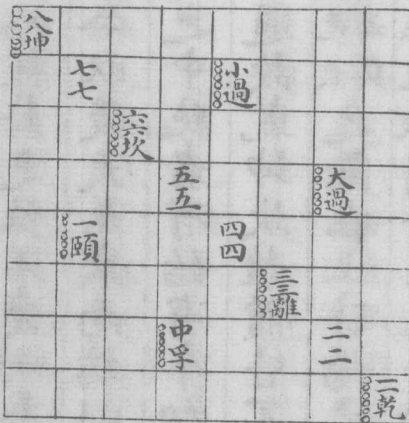 八八坤
七七
小過
六六坎
五五
大過
一頤
四四
三三離
中孚
二二
一一乾